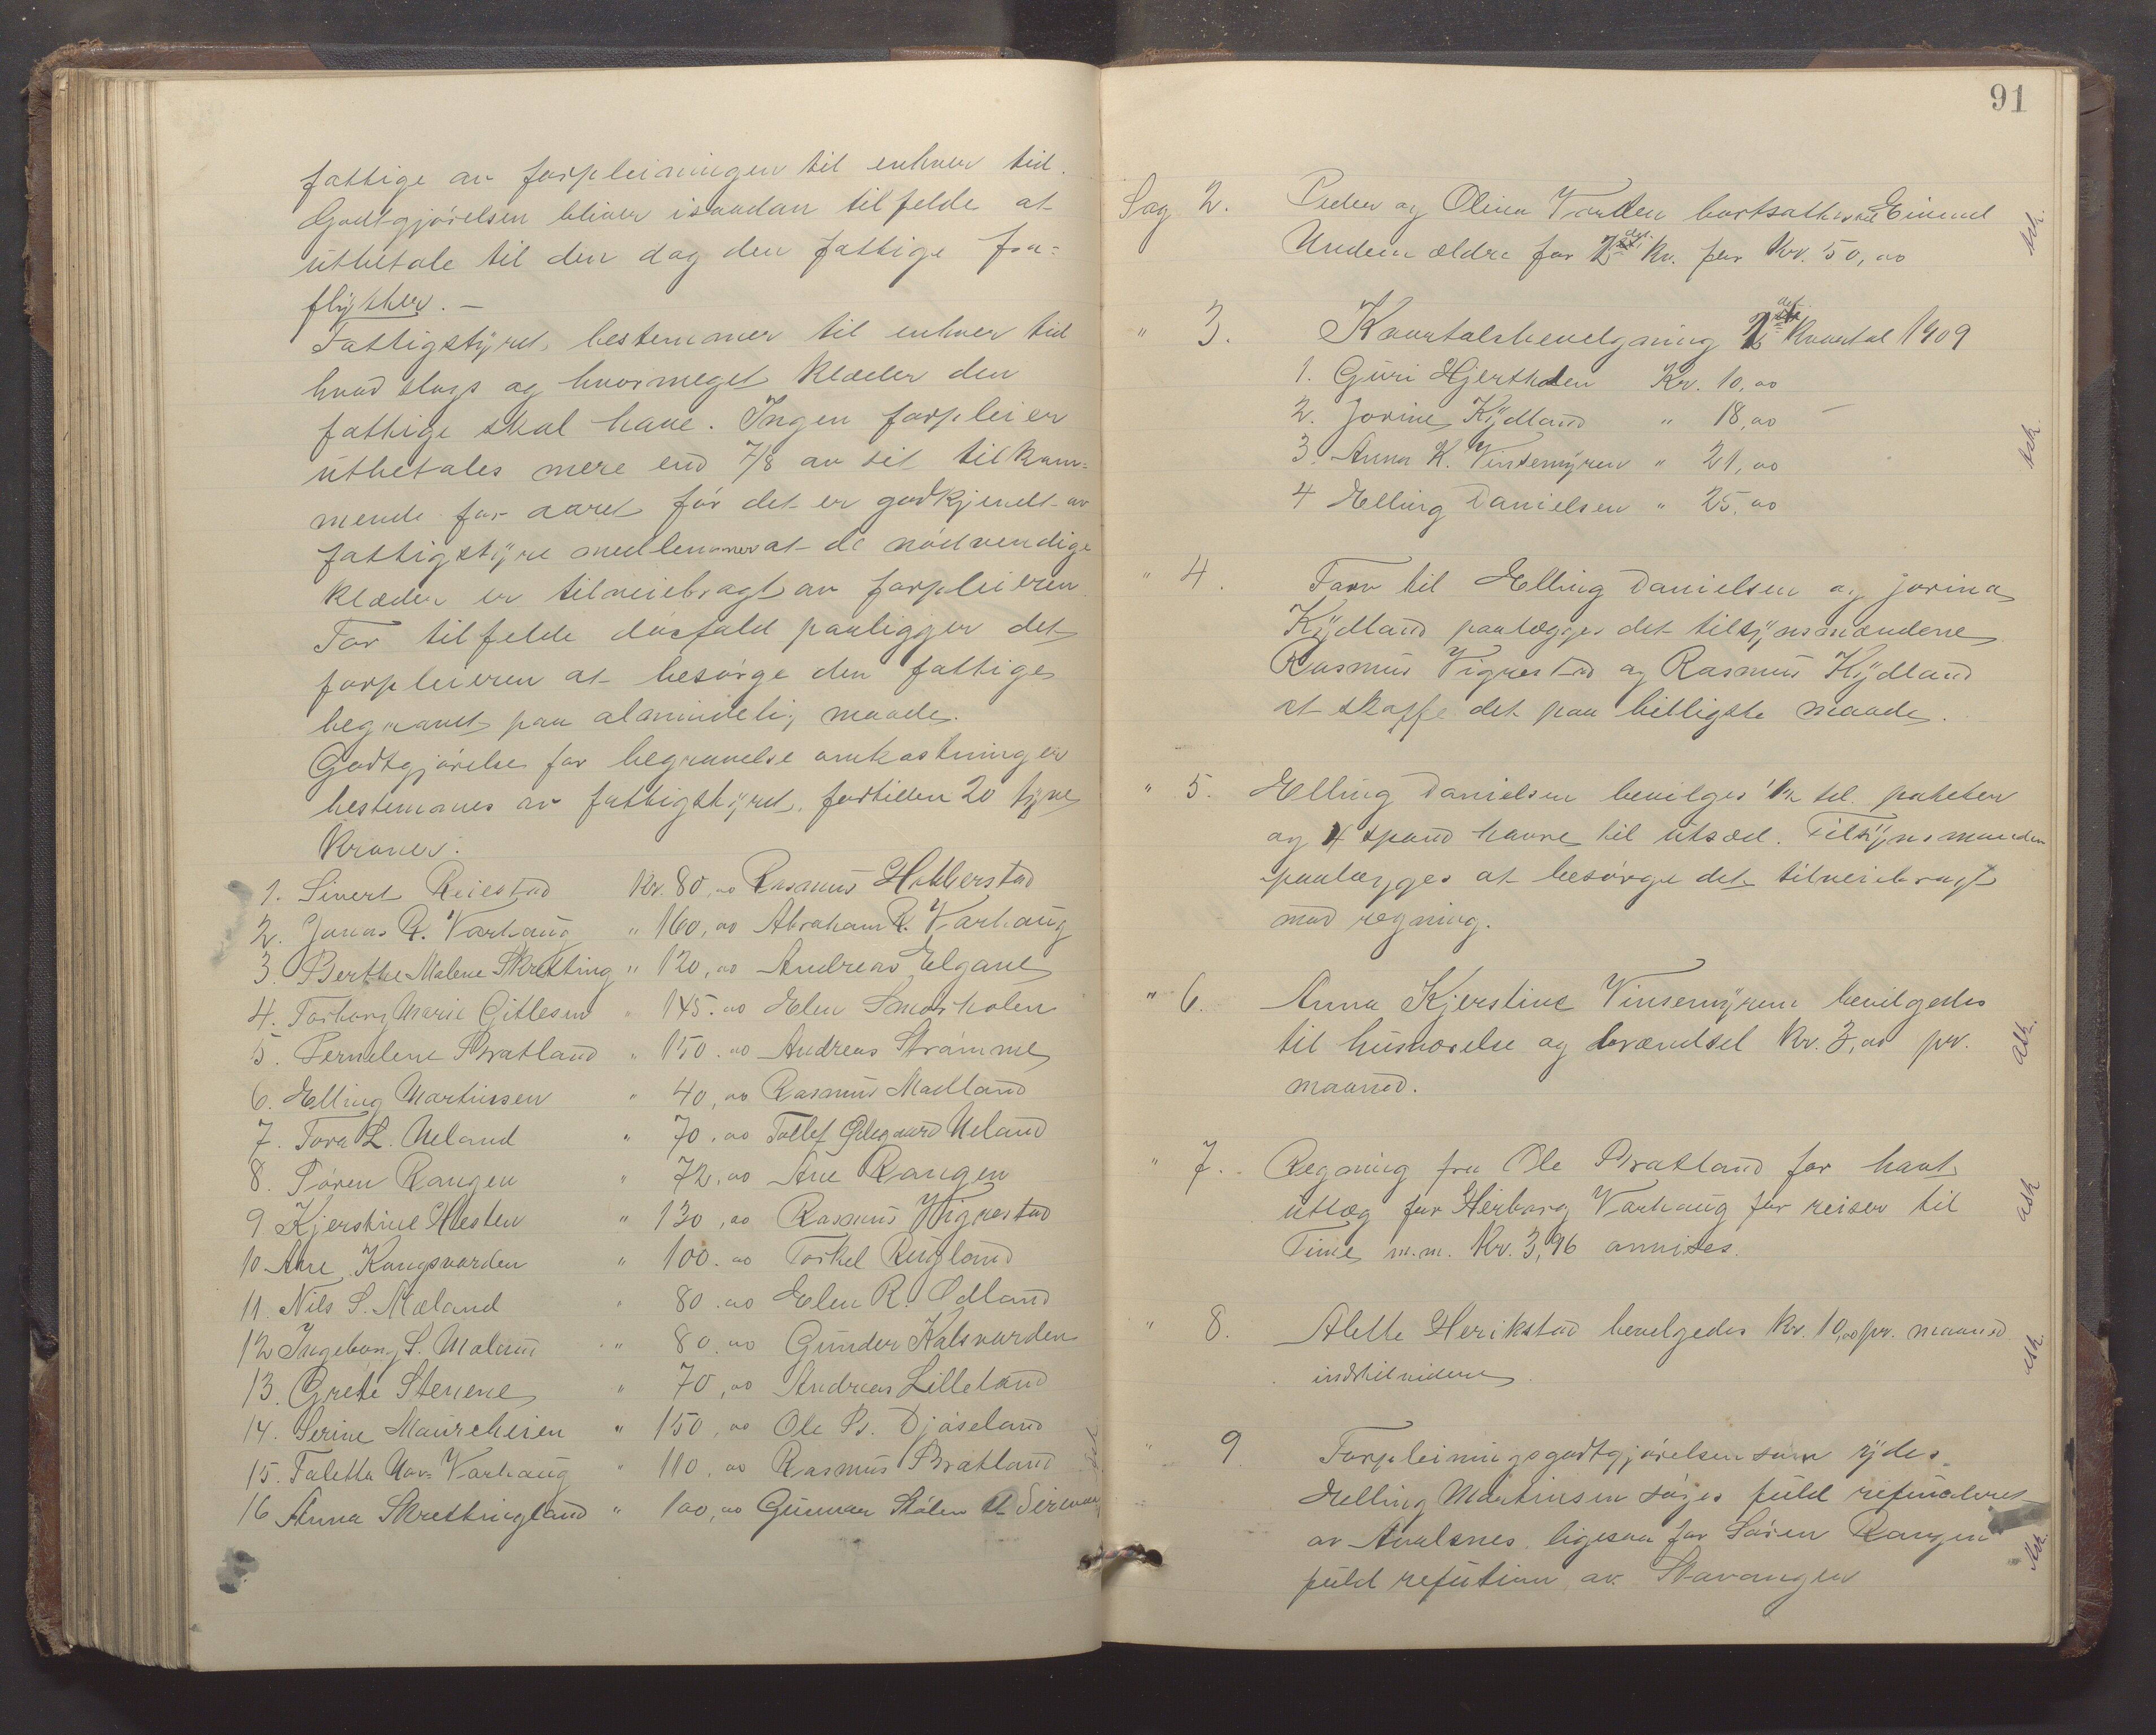 fattige av forpleiningen til enhver tid.
Godtgjörelsen bliver isaadan tilfelde at
utbetale til den dag den fattige fra=
flytter. —
Fattigstyret bestemmer til enhver tid
hvad slags og hvormeget klæder den
fattige skal have. Ingen forpleier
utbetales mere end 7/8 av sit tilkom=
mende for aaret för det er godkjendt av
fattigstyre medlemmer at de nödvendige
klæder er tilveiebragt av forpleieren
For tilfelde dösfald paaligger det
forpleieren at besörge den fattige
begravet paa almindelig maade.
Godtgjörelse for begravelse omkostninger
bestemmes av fattigstyret, fortiden 20 tyve
kroner.
1. Sivert Reiestad Kr. 80,00 Rasmus Hobberstad
2. Jonas R. Varhaug " 160,00 Abraham R. Varhaug
3. Berthe Malene Skretting " 120,00 Andreas Elgane
4. Torborg Marie Gitlesen " 145.00 Elen
5. Pernelene Bratland " 150.00 Andreas Strömme
6. Elling Martinsen " 40,00 Rasmus Madland
7. Tora L. Ueland " 70.00 Tollef Ödegaard Ueland
8. Sören Rangen " 72.00 Ane Rangen
9 Kjerstine Hesten " 130,00 Rasmus Vigrestad
10 Ane Kongsvarden " 100.00 Torkel Rugland
11. Nils S. Mæland " 80.00 Elen R. Ödland
12 Ingeborg S. Mæland " 80.00 Gunder Kalsvarden
13. Grete Stenene " 70,00 Andreas Lilleland
14. Serine Maurcheien " 150,00 Ole Ps. Djöseland
15. Taletta Varhaug " 110,00 Rasmus Bratland
16 Anna Skrettingland " 100,00 Gunnar Stölen
91
Sag 2. Peder og Olina Varden bortsat hos Eivind
Undem ældre for 2det kv. for Kr. 50,00
" 3. Kvartalsbevelgning 2det Kvartal 1909
1. Guri Hjerthalen Kr. 10,00
2. Jorine Kydland " 18,00 —
3. Anna K. Vinsemyren " 21,00
4 Elling Danielsen " 25,00
" 4. Torv til Elling Danielsen og Jorina
Kydland paalægges det tilsynsmændene
Rasmus Vigrestad og Rasmus Kydland
at skaffe det paa billigste maade.
" 5. Elling Danielsen bevilges 1/2 td. poteter
og 4 spand havre til utsæd. Tilsynsmanden
paalægges at besörge det tilveiebragt
mod regning.
" 6. Anna Kjerstine Vinsemyren bevilgedes
til husværelse og brændsel Kr. 3,00 pr.
maaned.
" 7. Regning fra Ole Bratland for havt
utlæg for Herborg Varhaug for reiser til
Time m.m. Kr. 3,96 anvises.
" 8. Alette Herikstad bevelgedes Kr. 10,00 pr. maaned
indtil videre.
" 9. Forpleiningsgodtgjörelsen som ydes
Elling Martinsen söges fuld refunderet
av Avalsnes, ligesaa for Sören Rangen
fuld refution av Stavanger